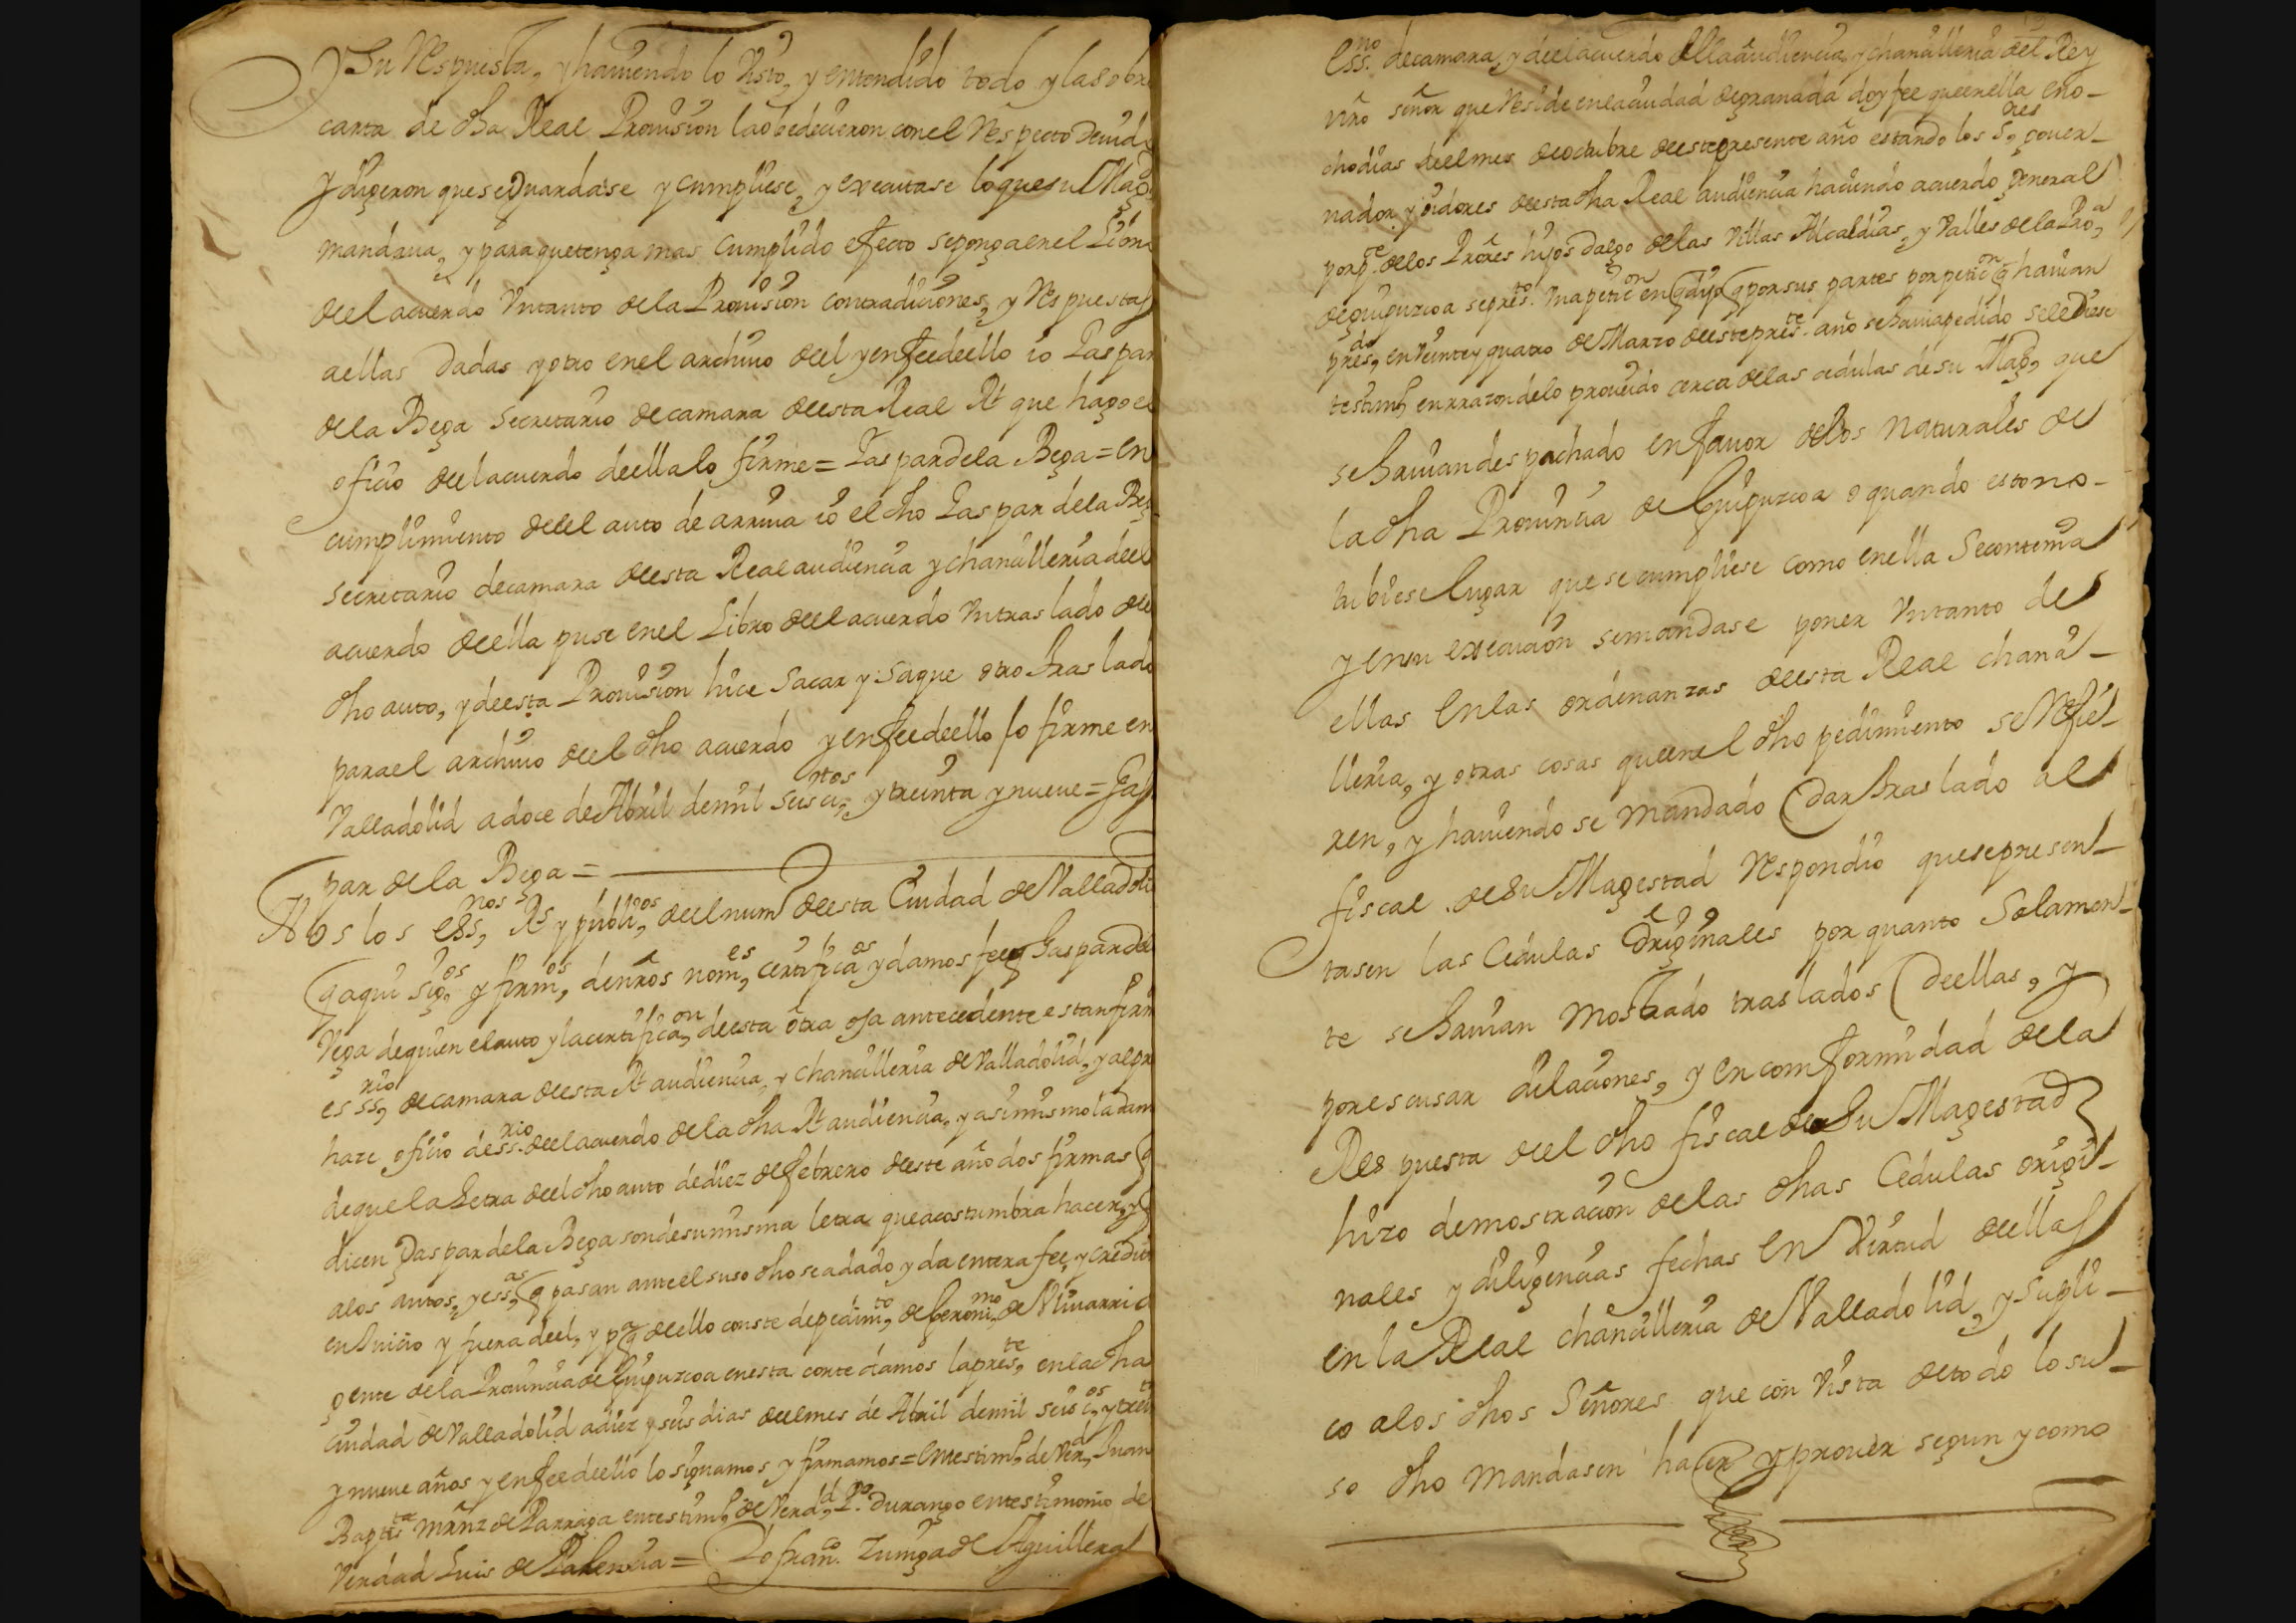 Su Respuesta, y haviendo lo Visto, y entendido todo y la sobre
carta de dha Real Provision la obedecieron con el Respecto devido
y dixeron que se Guardase y cumpliese, y executase lo que su Magd
mandava, y para que tenga mas cumplido efecto se ponga en el Libro
de el acuerdo Un tanto de la Provision contradiciones, y Respuestas
a ellas dadas y otro en el archivo de el y en fee de ello io Gaspar
de la Bega Secretario de camara de esta Real At que hago el
oficio de el acuerdo de ella lo firme = Gaspar de la Bega = En
cumplimiento de el auto de arriva io el dho Gaspar de la Bega
secretario de camara de esta Real audiencia y chancilleria de el
acuerdo de ella puse en el Libro de el acuerdo Un traslado de el
dho auto, y de esta Provision hice Sacar y Saque otro traslado
para el archivo de el dho acuerdo y en fee de ello lo firme en
Valladolid a doce de Abril de mil seiscientos, y treinta y nueve = Gas
par de la Bega =
Nos los essnos, Rs y publicos, de el num de esta Ciudad de Valladolid
q aqui sigos, y firmos, de nros nomes, certificaos y damos fee q Gaspar de la
Vega de quien el auto y la certificaon, de esta otra oja antecedente estan firm
es ssrio, de camara de esta Rl audiencia, y chancilleria de Valladolid, y al pr
haze oficio de ssrio de el acuerdo de la dha Rl audiencia, y asimismo la dam
de que la Letra de el dho auto de diez de febrero de este año dos firmas q
dicen Gaspar de la Bega son de su misma letra que acostumbra hacer, y q
a los autos, y essas, q pasan ante el suso dho se a dado y da entera fee, y credito
en Juicio y fuera de el, y pa q de ello conste de pedimto, de Geronimo, de Ulivarri a
gente de la Provincia de Guipuzcoa en esta corte damos la preste, en la dha
ciudad de Valladolid a diez y seis dias de el mes de Abril de mil seiscos, y treinta
y nueve años y en fee de ello lo signamos y firmamos = En testimo, de Verd, Juan
Baptista Mrnz de Larraga en testimo, de Verdd, Po. durango en testimonio de
Verdad Luis de Palencia = Lo franco. Zuniga de Aguillera
Essno. de camara, y de el acuerdo de la audiencia, y chancilleria del Rey
nro señor que Reside en la ciudad de granada doy fee que en ella en o-
cho dias de el mes de octubre de este presente año estando los Sres, gover-
nador y oidores de esta dha Real audiencia haciendo acuerdo general
por pte. de los Prores hijos dalgo de las Villas Alcaldias, y Valles de la Proa,
de guipuzcoa se presto. Una peticion en q dijo q por sus partes por peticon q havian
presdo, en Veinte y quatro de Marzo de este preste. año se havia pedido se le Diese
testimo, en rrazon de lo proveido cerca de las cedulas de su Magd, que
se havian despachado en favor de los naturales de
la dha Provincia de Guipuzcoa o quando esto no-
tubiese lugar que se cumpliese como en ella Se contenia
y en su execucion se mandase poner Un tanto de
ellas En las ordenanzas de esta Real chanci-
lleria, y otras cosas que en el dho pedimiento se Refie-
ren, y haviendose mandado dar traslado al
fiscal de Su Magestad Respondio que se presen-
tasen las Cedulas Originales por quanto Solamen-
te se havian mostrado traslados de ellas, y
por escusar dilaciones, y en comformidad de la
Respuesta de el dho fiscal de Su Magestad
hizo demostracion de las dhas Cedulas origi-
nales y diligencias fechas En Virtud de ellas
en la Real chancilleria de Valladolid, y supli-
co a los dhos Señores que con Vista de todo lo su-
so dho mandasen hacer y prover segun y como